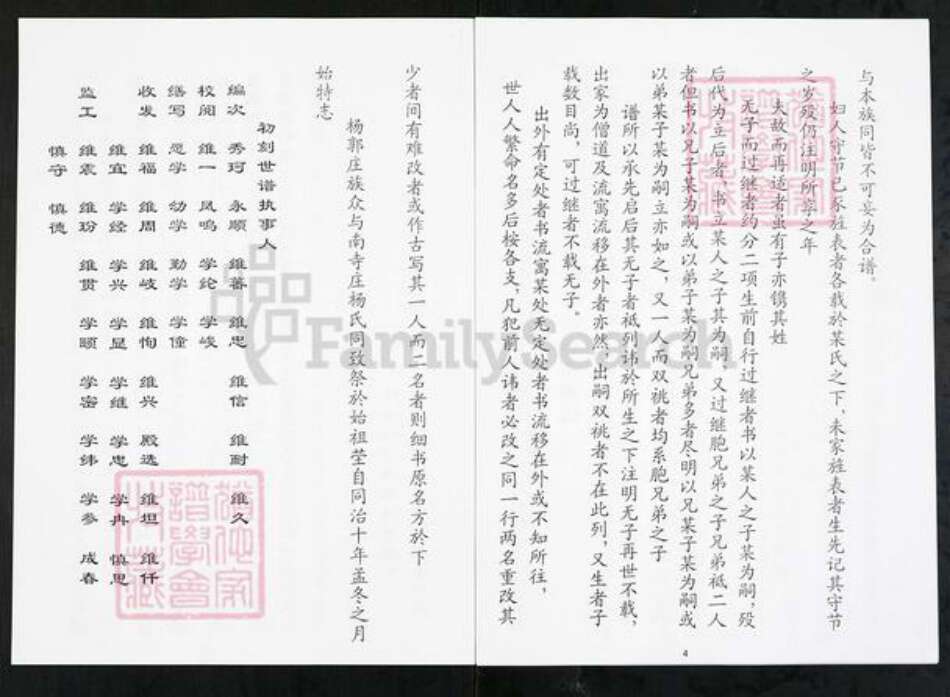 与本族同皆不可妄为合谱。
妇人守节已系旌表者各载於某氏之下、未家旌表者生先记其守节
之岁殁仍注明所守之年
夫故而再适者虽有子亦镌其姓
无子而过继者约分二项生前自行过继者书以某人之子某为嗣,殁
后代为立后者、书立某人之子其为嗣、又过继胞兄弟之子兄弟祗二人
者但书以兄子某为嗣或以弟子某为嗣兄弟多者尽明以兄某子某为嗣或
以弟某子某为嗣立亦如之,又一人而双祧者均系胞兄弟之子
谱所以承先启后其无子者祗列讳於所生之下注明无子再世不载,
出家为僧道及流寓流移在外者亦然、出嗣双祧者不在此列,又生者子
载数目尚,可过继者不载无子。
出外有定处者书流寓某处无定处者书流移在外或不知所往,
世人人繁命名多后桉各支,凡犯前人讳者必改之同一行两名重改其
4
少者间有难改者或作古写其一人而二名者则细书原名方於下
杨郭庄族众与南寺庄杨氏同致祭於始祖茔自同治十年孟冬之月
始特志
初刻世谱执事人
编次 秀珂 永顺 维蕃 维忠 维信 维耐 维久
校阅 维一 凤鸣 学纶 学峻
缮写 思学 幼学 勤学 学僮
收发 维福 维周 维岐 维恂 维兴 殿选 维坦 维仟
维宜 学经 学兴 学显 学继 学忠 学冉 慎思
监工 维震 维玢 维贯 学颐 学密 学纬 学参 成春
慎守 慎德
FamilySearch